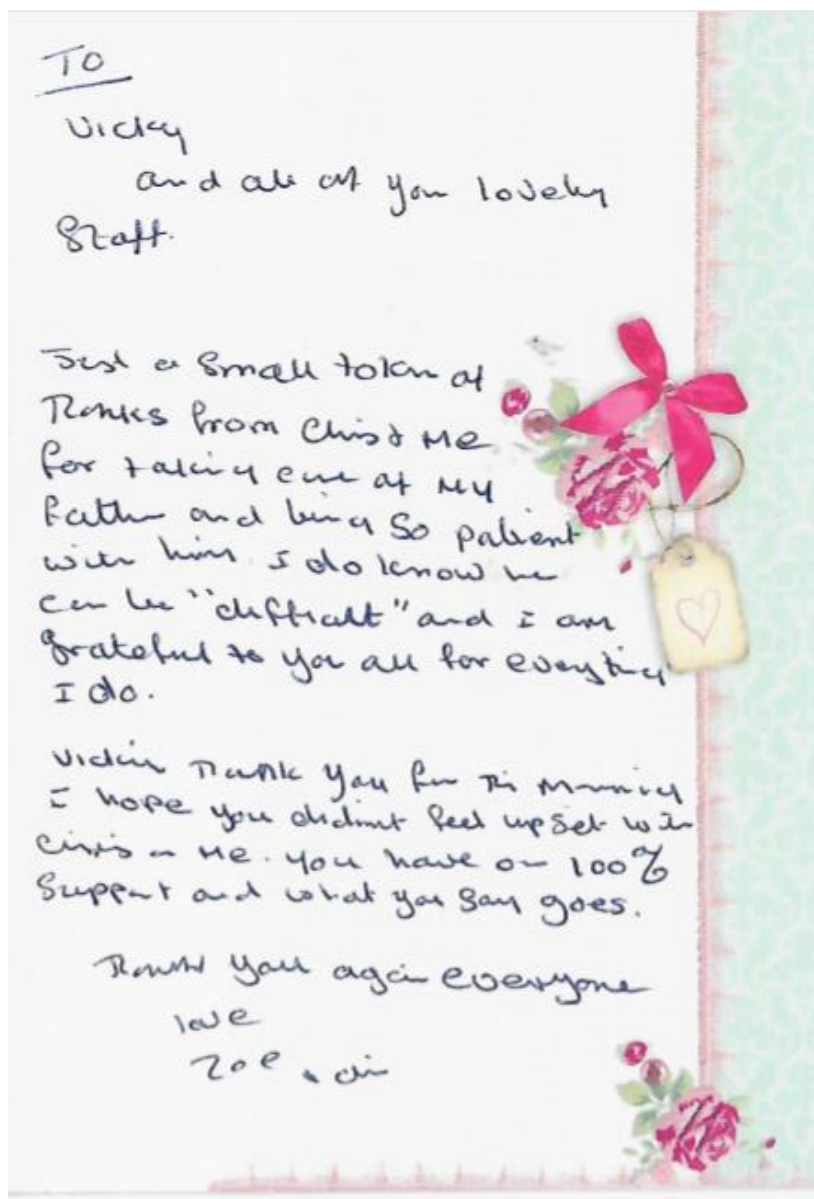 TO
Vicky
and all of you lovely
Staff.
Just a small token of
Thanks from Chris & Me
for taking care of My
Father and being so patient
with him. I do know he
can be "difficult" and I am
grateful to you all for everything
I do.
Vickie Thank you for this Morning
I hope you didnt feel upset with
Chris or Me. you have our 100%
Support and what you say goes.
Thank you again everyone
love
Zoe &